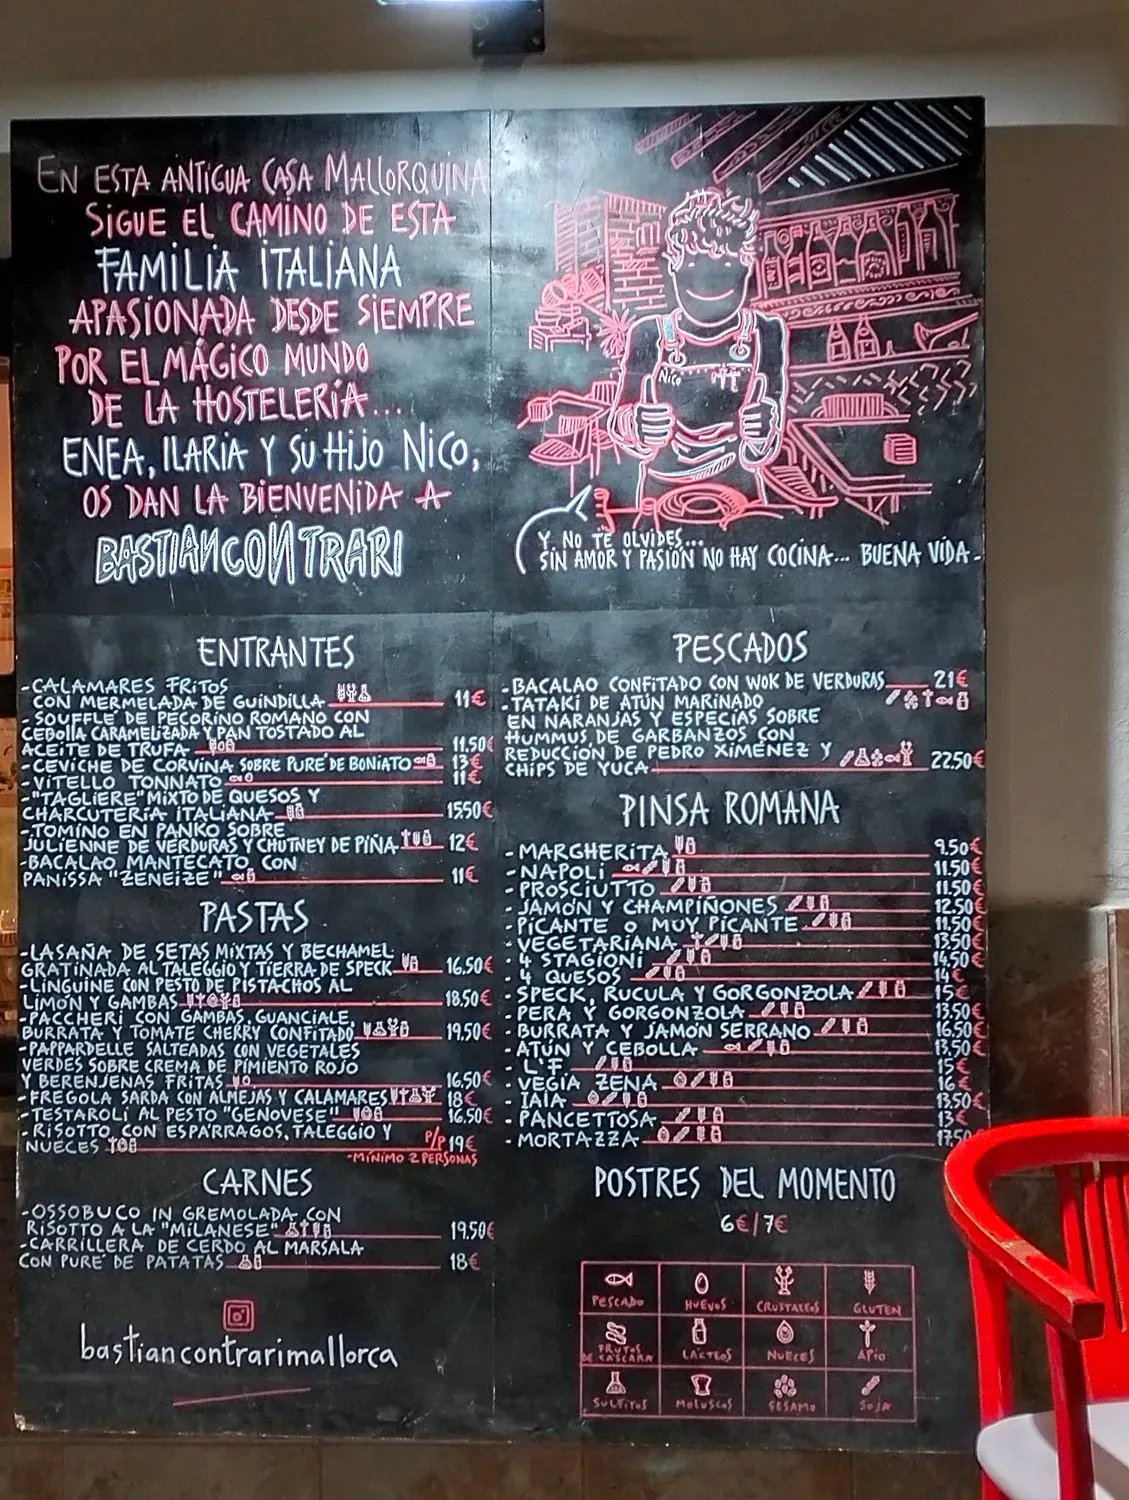 EN ESTA ANTIGUA CASA MALLORQUINA
SIGUE EL CAMINO DE ESTA
FAMILIA ITALIANA
APASIONADA DESDE SIEMPRE
POR EL MÁGICO MUNDO
DE LA HOSTELERÍA...
ENEA, ILARIA Y SU HIJO NICO,
OS DAN LA BIENVENIDA A
BASTIANCONTRARI
NICO
Y NO TE OLVIDES...
SIN AMOR Y PASIÓN NO HAY COCINA... BUENA VIDA-
ENTRANTES
-CALAMARES FRITOS
CON MERMELADA DE GUINDILLA 11€
-SOUFFLÉ DE PECORINO ROMANO CON
CEBOLLA CARAMELIZADA Y PAN TOSTADO AL
ACEITE DE TRUFA 11.50€
-CEVICHE DE CORVINA SOBRE PURÉ DE BONIATO 13€
-VITELLO TONNATO 11€
-"TAGLIERE" MIXTO DE QUESOS Y
CHARCUTERIA ITALIANA 15.50€
-TOMINO EN PANKO SOBRE
JULIENNE DE VERDURAS Y CHUTNEY DE PIÑA 12€
-BACALAO MANTECATO CON
PANISSA "ZENEIZE" 11€
PASTAS
-LASAÑA DE SETAS MIXTAS Y BECHAMEL
GRATINADA AL TALEGGIO Y TIERRA DE SPECK 16.50€
-LINGUINE CON PESTO DE PISTACHOS AL
LIMÓN Y GAMBAS 18.50€
-PACCHERI CON GAMBAS, GUANCIALE,
BURRATA Y TOMATE CHERRY CONFITADO 19.50€
-PAPPARDELLE SALTEADAS CON VEGETALES
VERDES SOBRE CREMA DE PIMIENTO ROJO
Y BERENJENAS FRITAS 16.50€
-FREGOLA SARDA CON ALMEJAS Y CALAMARES 18€
-TESTAROLI AL PESTO "GENOVESE" 16.50€
-RISOTTO CON ESPÁRRAGOS, TALEGGIO Y
NUECES P/P 19€
-MÍNIMO 2 PERSONAS
CARNES
-OSSOBUCO IN GREMOLADA CON
RISOTTO A LA "MILANESE" 19.50€
-CARRILLERA DE CERDO AL MARSALA
CON PURÉ DE PATATAS 18€
bastiancontrarimallorca
PESCADOS
-BACALAO CONFITADO CON WOK DE VERDURAS 21€
-TATAKI DE ATÚN MARINADO
EN NARANJAS Y ESPECÍAS SOBRE
HUMMUS DE GARBANZOS CON
REDUCCIÓN DE PEDRO XIMÉNEZ Y
CHIPS DE YUCA 22.50€
PINSA ROMANA
-MARGHERITA 9.50€
-NAPOLI 11.50€
-PROSCIUTTO 11.50€
-JAMÓN Y CHAMPIÑONES 12.50€
-PICANTE O MUY PICANTE 11.50€
-VEGETARIANA 13.50€
-4 STAGIONI 14,50€
-4 QUESOS 14€
-SPECK, RUCULA Y GORGONZOLA 15€
-PERA Y GORGONZOLA 13.50€
-BURRATA Y JAMÓN SERRANO 16.50€
-ATÚN Y CEBOLLA 13.50€
-L'F 15€
-VEGIA ZENA 16€
-IAIA 13.50€
-PANCETTOSA 13€
-MORTAZZA 17.50
POSTRES DEL MOMENTO
6€/7€
PESCADO HUEVOS CRUSTACEOS GLUTEN
FRUTOS
DE CASCARA LACTEOS NUECES APIO
SULFITOS MOLUSCOS SESAMO SOJA